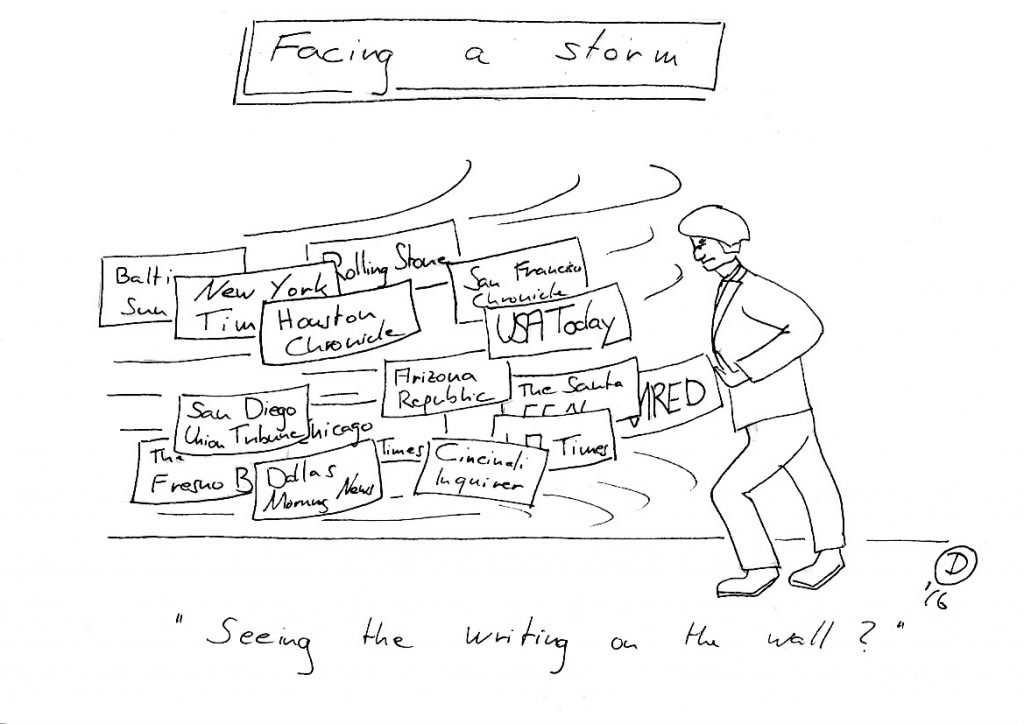 Facing a storm
Balti
Sun
New York
Tim
Rolling Stone
Houston
Chronicle
San Francisco
Chronicle
USA Today
Arizona
Republic
The Santa
IRED
San Diego
Union Tribune
Chicago
Times
LA Times
The
Fresno B
Dallas
Morning News
Cincinati
Inquirer
D
'16
"Seeing the writing on the wall?"